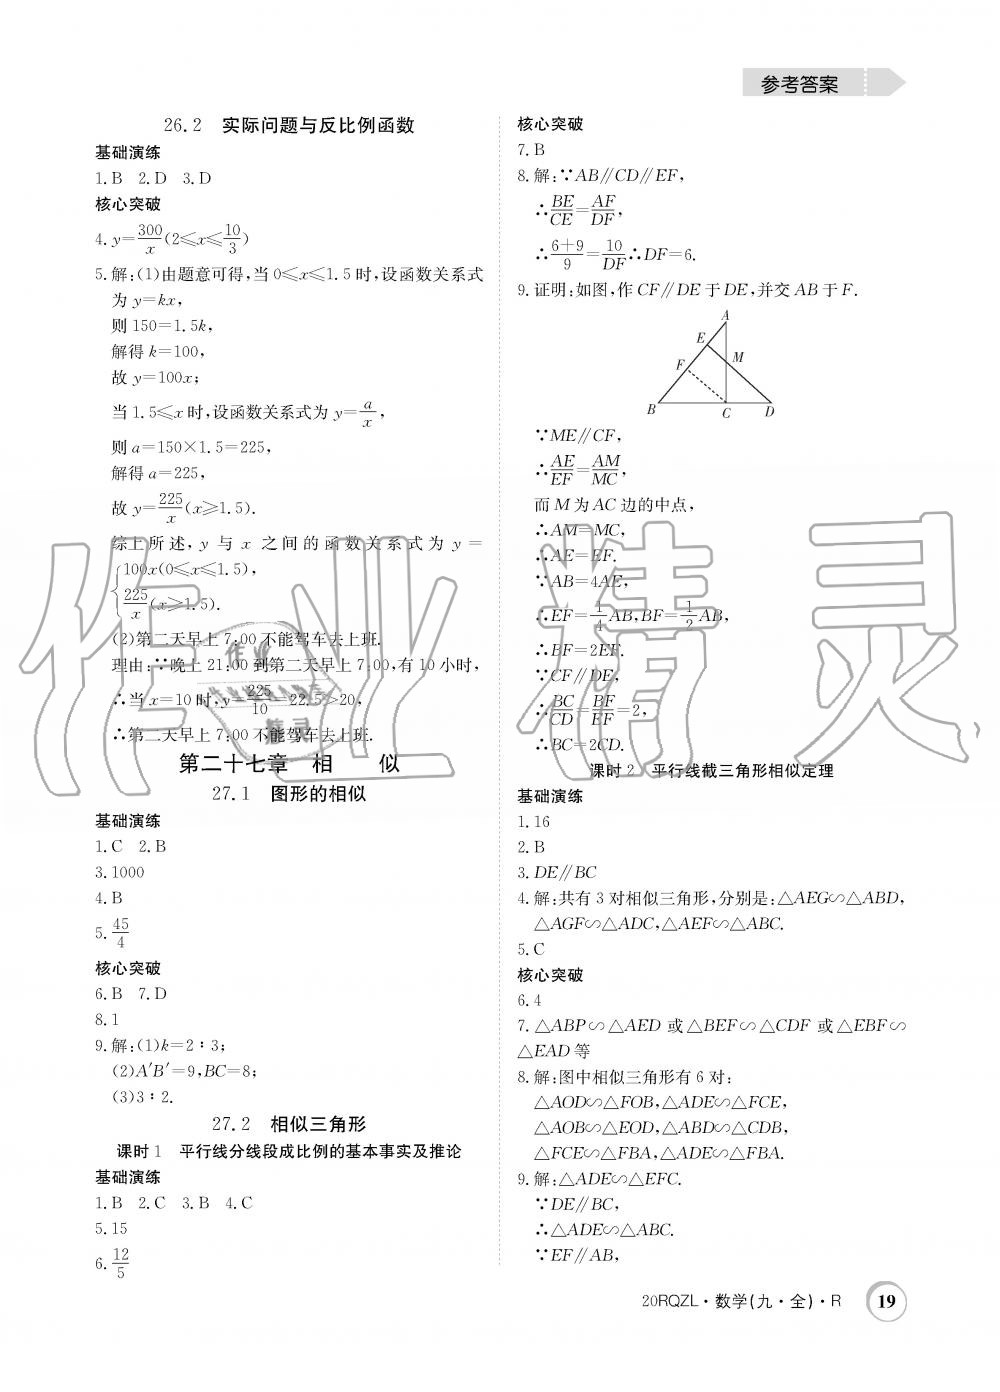 参考答案
26.2 实际问题与反比例函数
基础演练
1.B 2.D 3.D
核心突破
4.y=300/x(2≤x≤10/3)
5.解:(1)由题意可得,当0≤x≤1.5时,设函数关系式
为y=kx,
则150=1.5k,
解得k=100,
故y=100x;
当1.5≤x时,设函数关系式为y=a/x,
则a=150×1.5=225,
解得a=225,
故y=225/x(x≥1.5).
综上所述,y与x之间的函数关系式为y=
{100x(0≤x≤1.5),
225/x(x≥1.5).
(2)第二天早上7:00不能驾车去上班.
理由:∵晚上21:00到第二天早上7:00,有10小时,
∴当x=10时,y=225/10=22.5>20,
∴第二天早上7:00不能驾车去上班.
第二十七章 相 似
27.1 图形的相似
基础演练
1.C 2.B
3.1000
4.B
5.45/4
核心突破
6.B 7.D
8.1
9.解:(1)k=2∶3;
(2)A′B′=9,BC=8;
(3)3∶2.
27.2 相似三角形
课时1 平行线分线段成比例的基本事实及推论
基础演练
1.B 2.C 3.B 4.C
5.15
6.12/5
核心突破
7.B
8.解:∵AB∥CD∥EF,
∴BE/CE=AF/DF,
∴(6+9)/9=10/DF∴DF=6.
9.证明:如图,作CF∥DE于DE,并交AB于F.
A
E
M
F
B C D
∵ME∥CF,
∴AE/EF=AM/MC,
而M为AC边的中点,
∴AM=MC,
∴AE=EF.
∵AB=4AE,
∴EF=1/4AB,BF=1/2AB,
∴BF=2EF.
∵CF∥DE,
∴BC/CD=BF/EF=2,
∴BC=2CD.
课时2 平行线截三角形相似定理
基础演练
1.16
2.B
3.DE∥BC
4.解:共有3对相似三角形,分别是:△AEG∽△ABD,
△AGF∽△ADC,△AEF∽△ABC.
5.C
核心突破
6.4
7.△ABP∽△AED或△BEF∽△CDF或△EBF∽
△EAD等
8.解:图中相似三角形有6对:
△AOD∽△FOB,△ADE∽△FCE,
△AOB∽△EOD,△ABD∽△CDB,
△FCE∽△FBA,△ADE∽△FBA.
9.解:△ADE∽△EFC.
∵DE∥BC,
∴△ADE∽△ABC.
∵EF∥AB,
20RQZL·数学(九·全)·R 19
作业精灵
作业
精灵